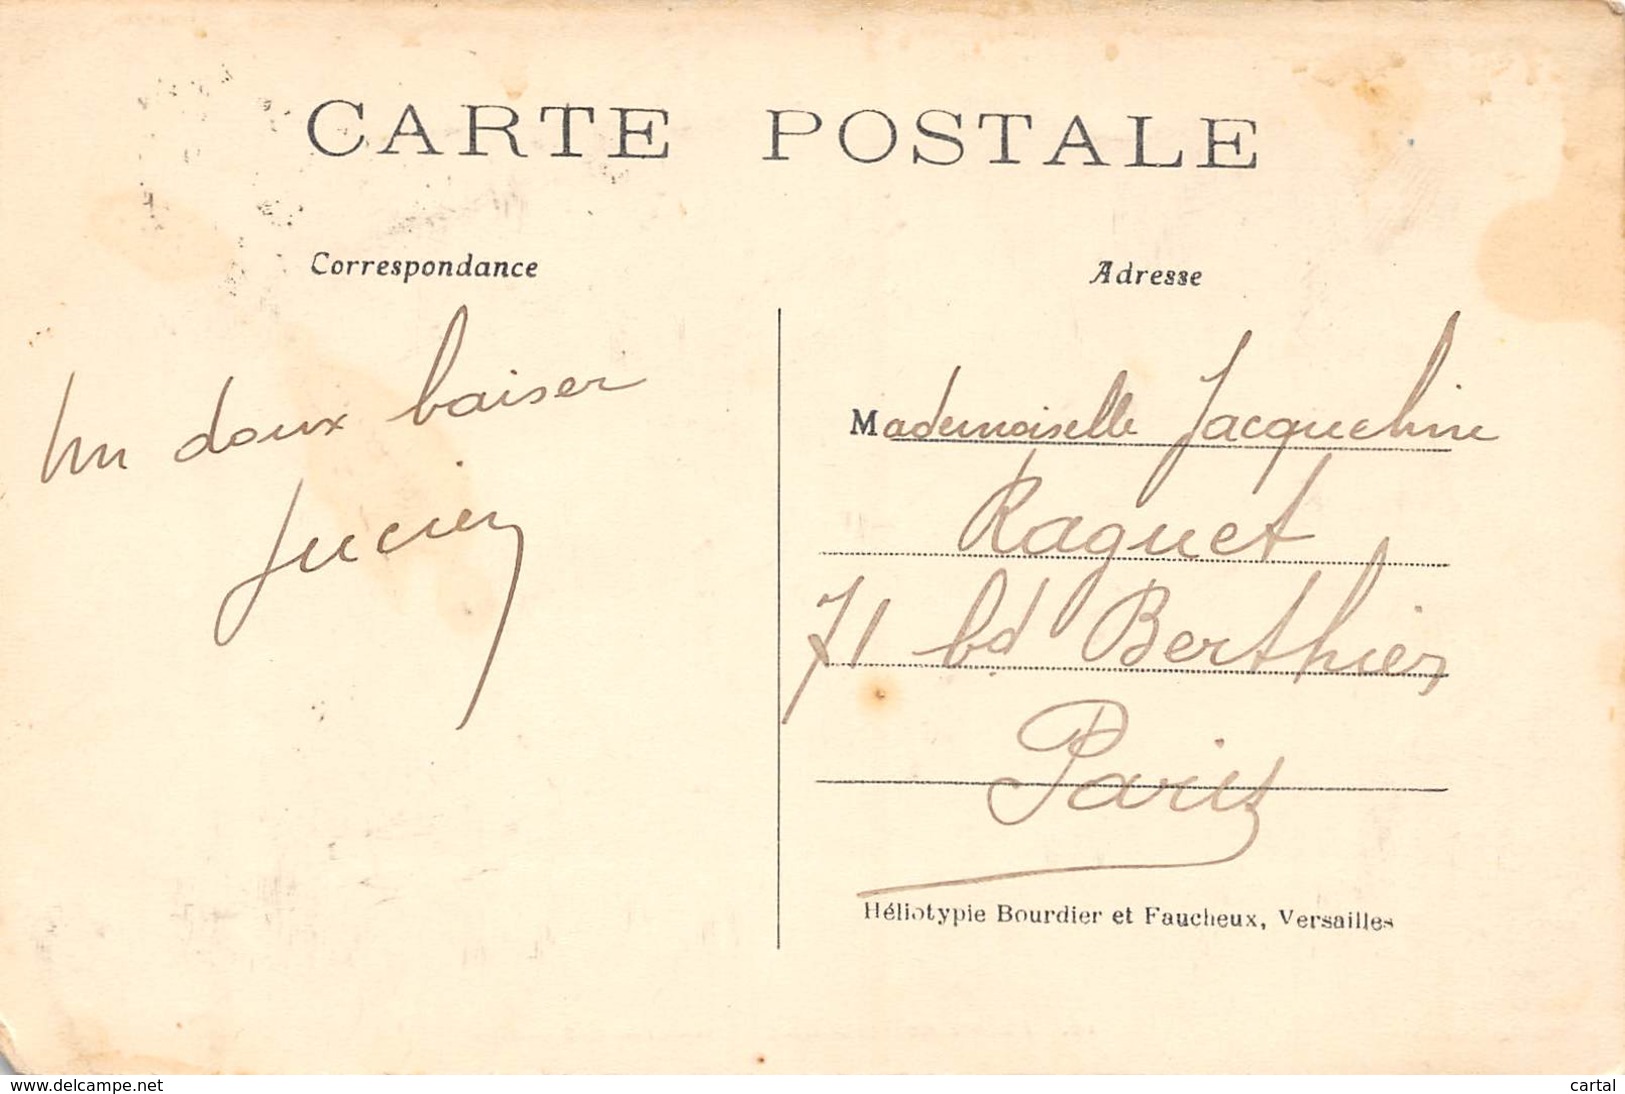 CARTE POSTALE
Correspondance
Un doux baiser
Lucien
Adresse
Mademoiselle Jacqueline
Raguet
71 bd Berthier
Paris
Héliotypie Bourdier et Faucheux, Versailles
www.delcampe.net
cartal